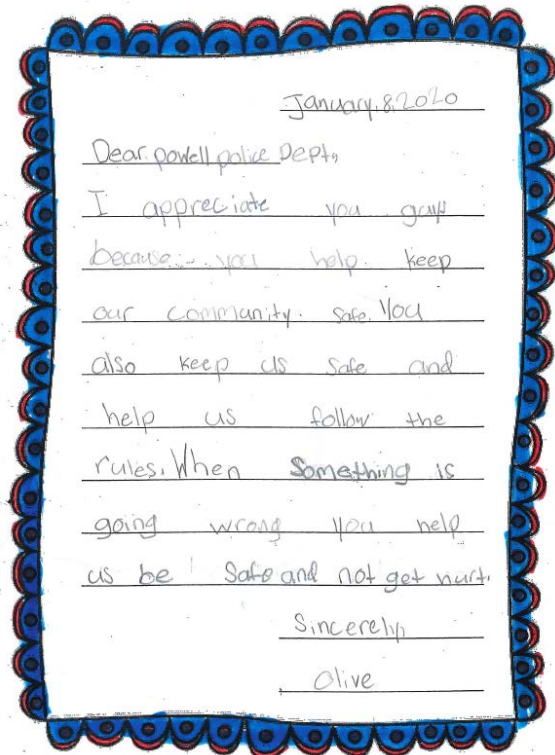 January,8,2020
Dear powell police Dept,
I appreciate you guys
because you help keep
our community safe. You
also keep us safe and
help us follow the
rules. When Something is
going wrong you help
us be Safe and not get hurt.
Sincerely,
Olive